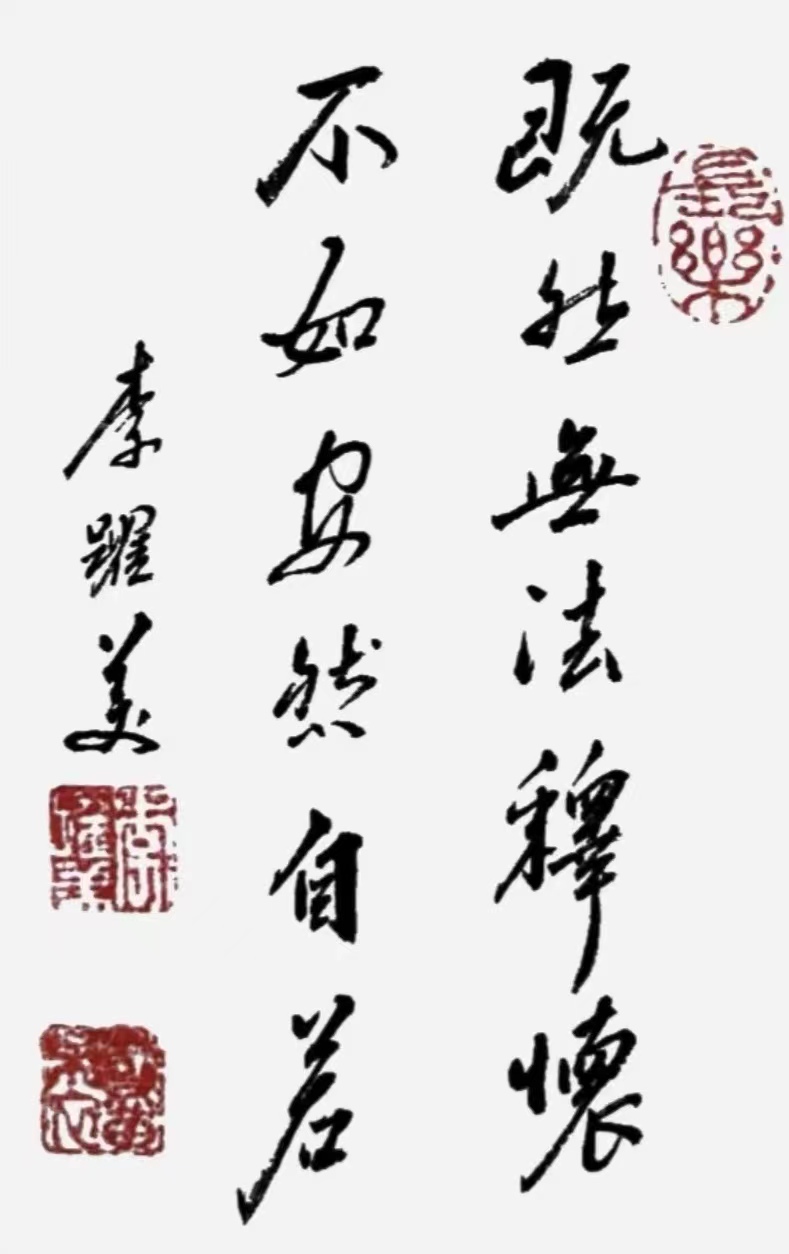 既然無法釋懷
不如安然自若
李躍美